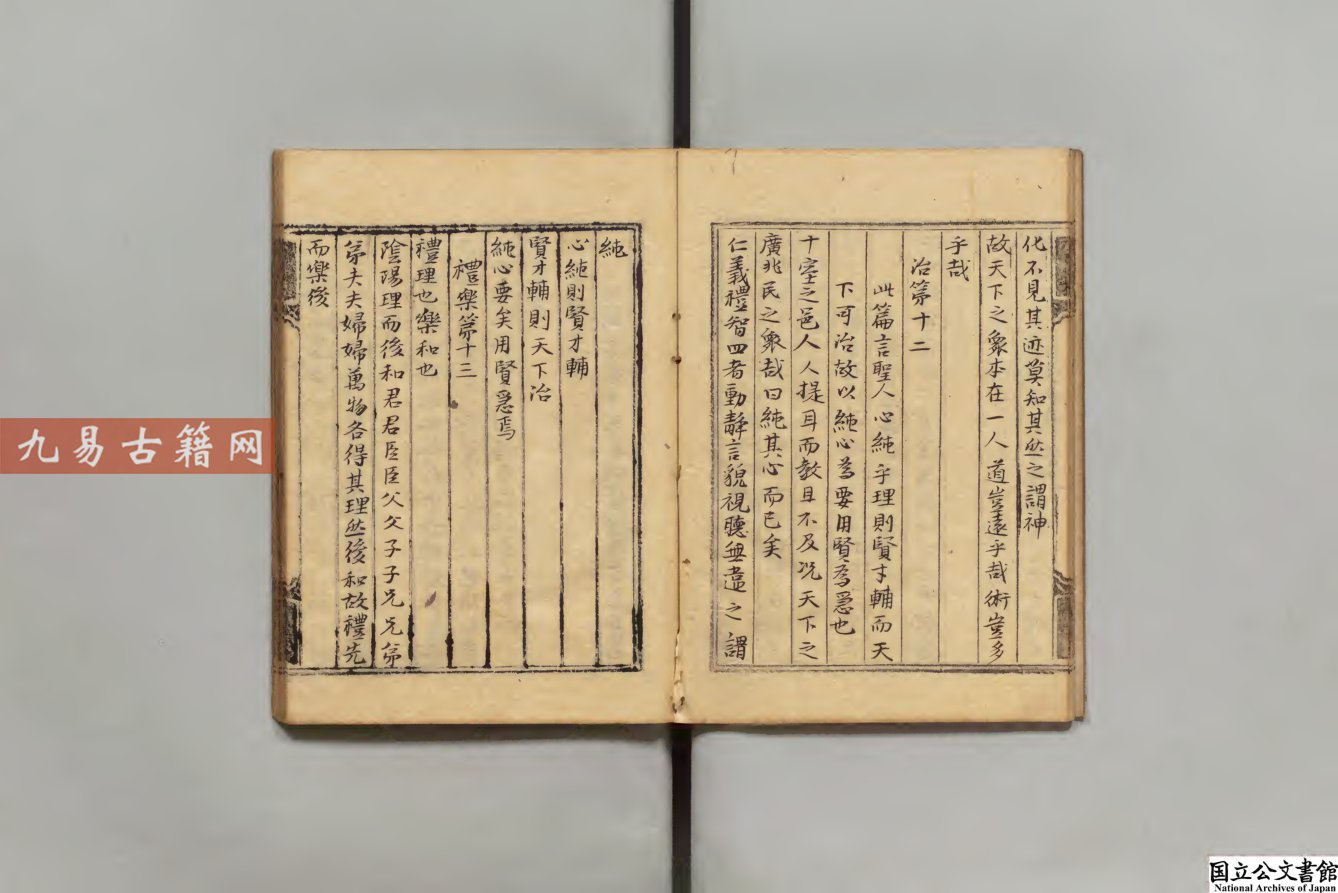 化不見其迹莫知其然之謂神
故天下之衆本在一人道豈遠乎哉術豈多
乎哉
治第十二
此篇言聖人心純乎理則賢才輔而天
下可治故以純心為要用賢為急也
十室之邑人人提耳而教且不及况天下之
廣兆民之衆哉曰純其心而已矣
仁義禮智四者動靜言貌視聽無違之謂
純
心純則賢才輔
賢才輔則天下治
純心要矣用賢急焉
禮樂第十三
禮理也樂和也
陰陽理而後和君君臣臣父父子子兄兄弟
弟夫夫婦婦萬物各得其理然後和故禮先
而樂後
九易古籍网
国立公文書館
National Archives of Japan